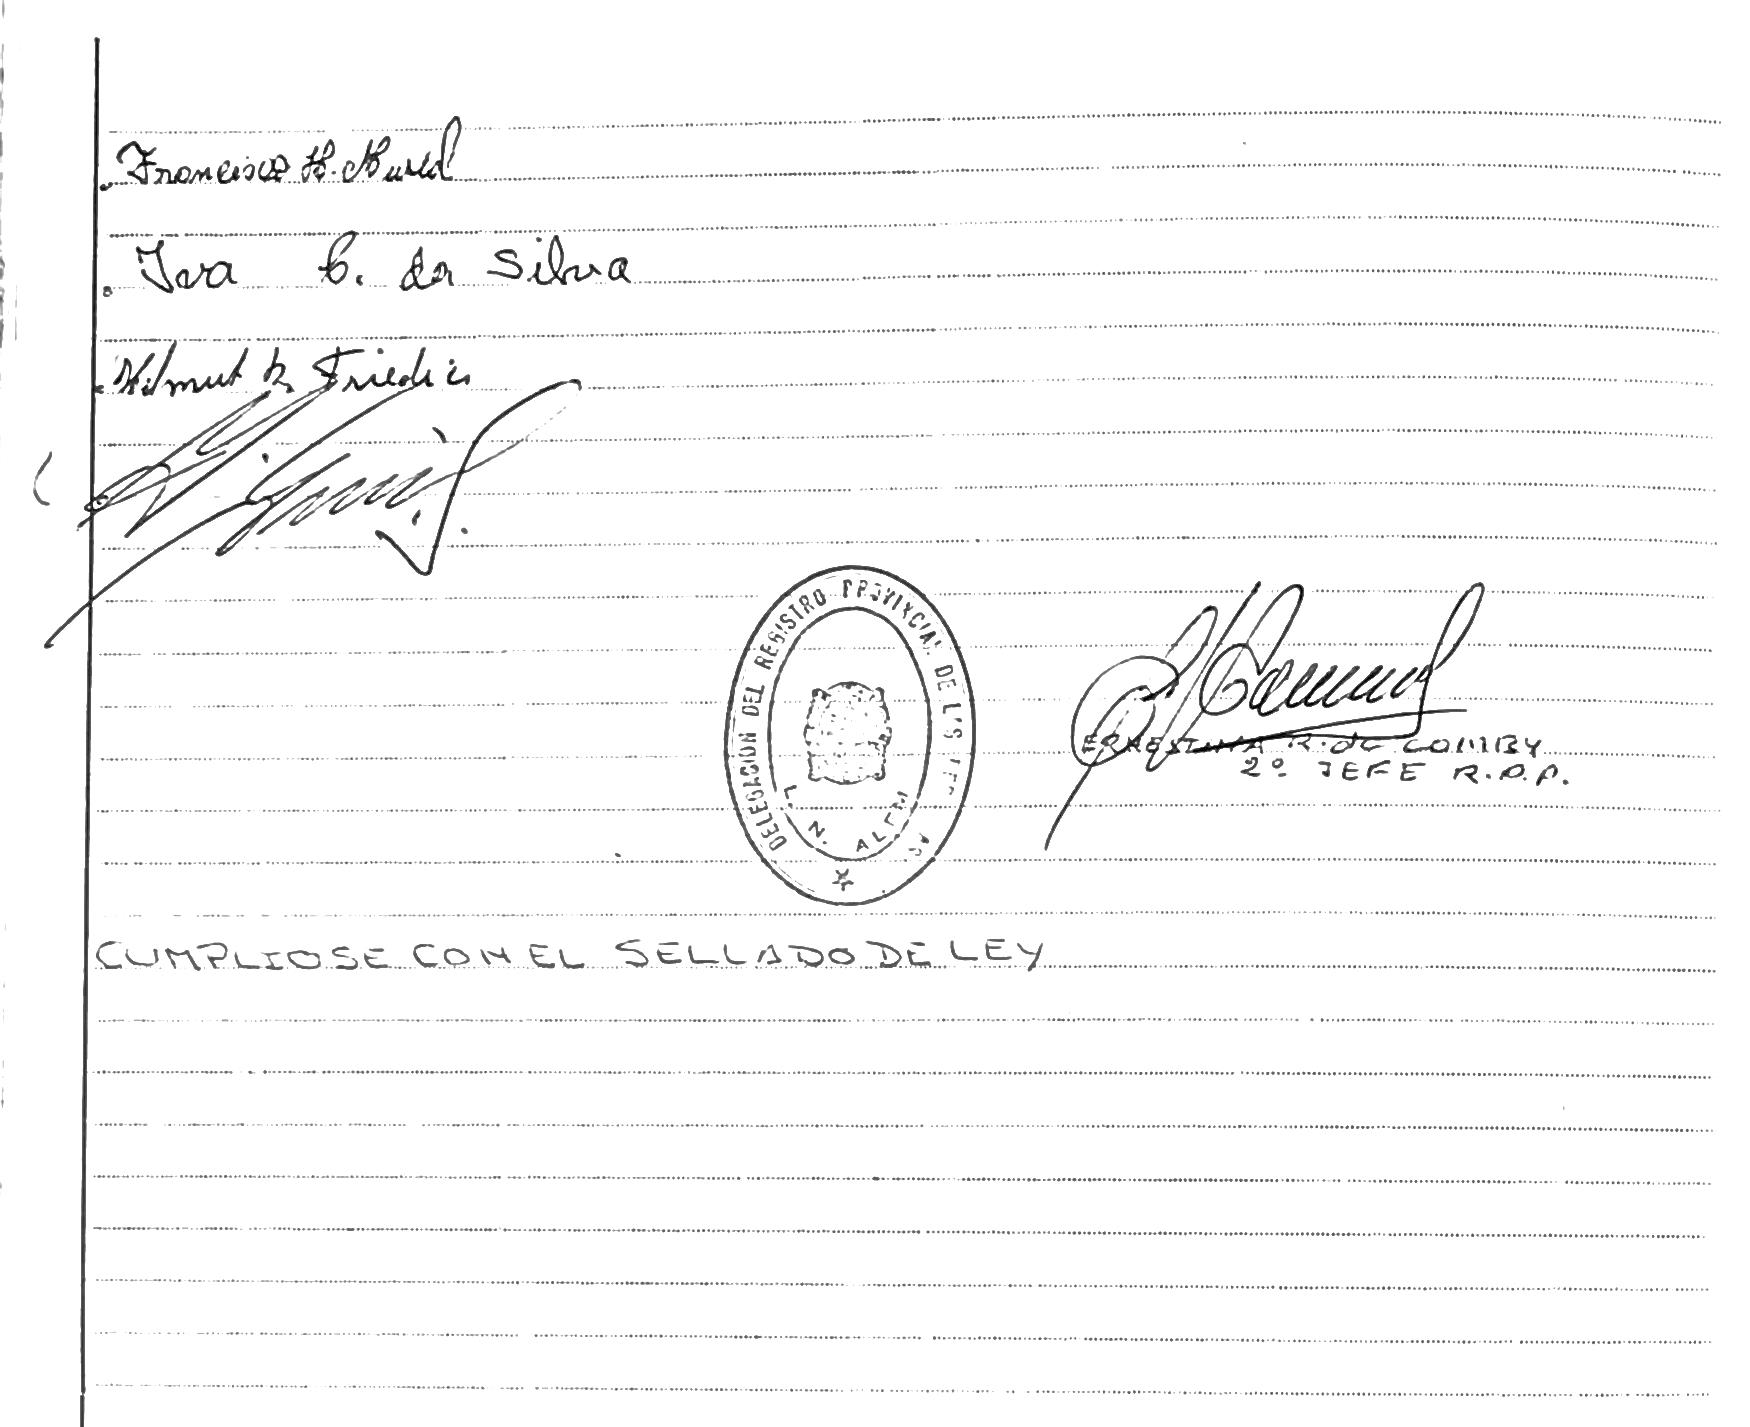 Francisco H.
Iva C. da Silva
Helmut R. Friedrich
DELEGACION DEL REGISTRO PROVINCIAL DE L
L. N. ALEM
ERNESTINA R. de COMBY
2º JEFE R.P.P.
CUMPLIOSE CON EL SELLADO DE LEY